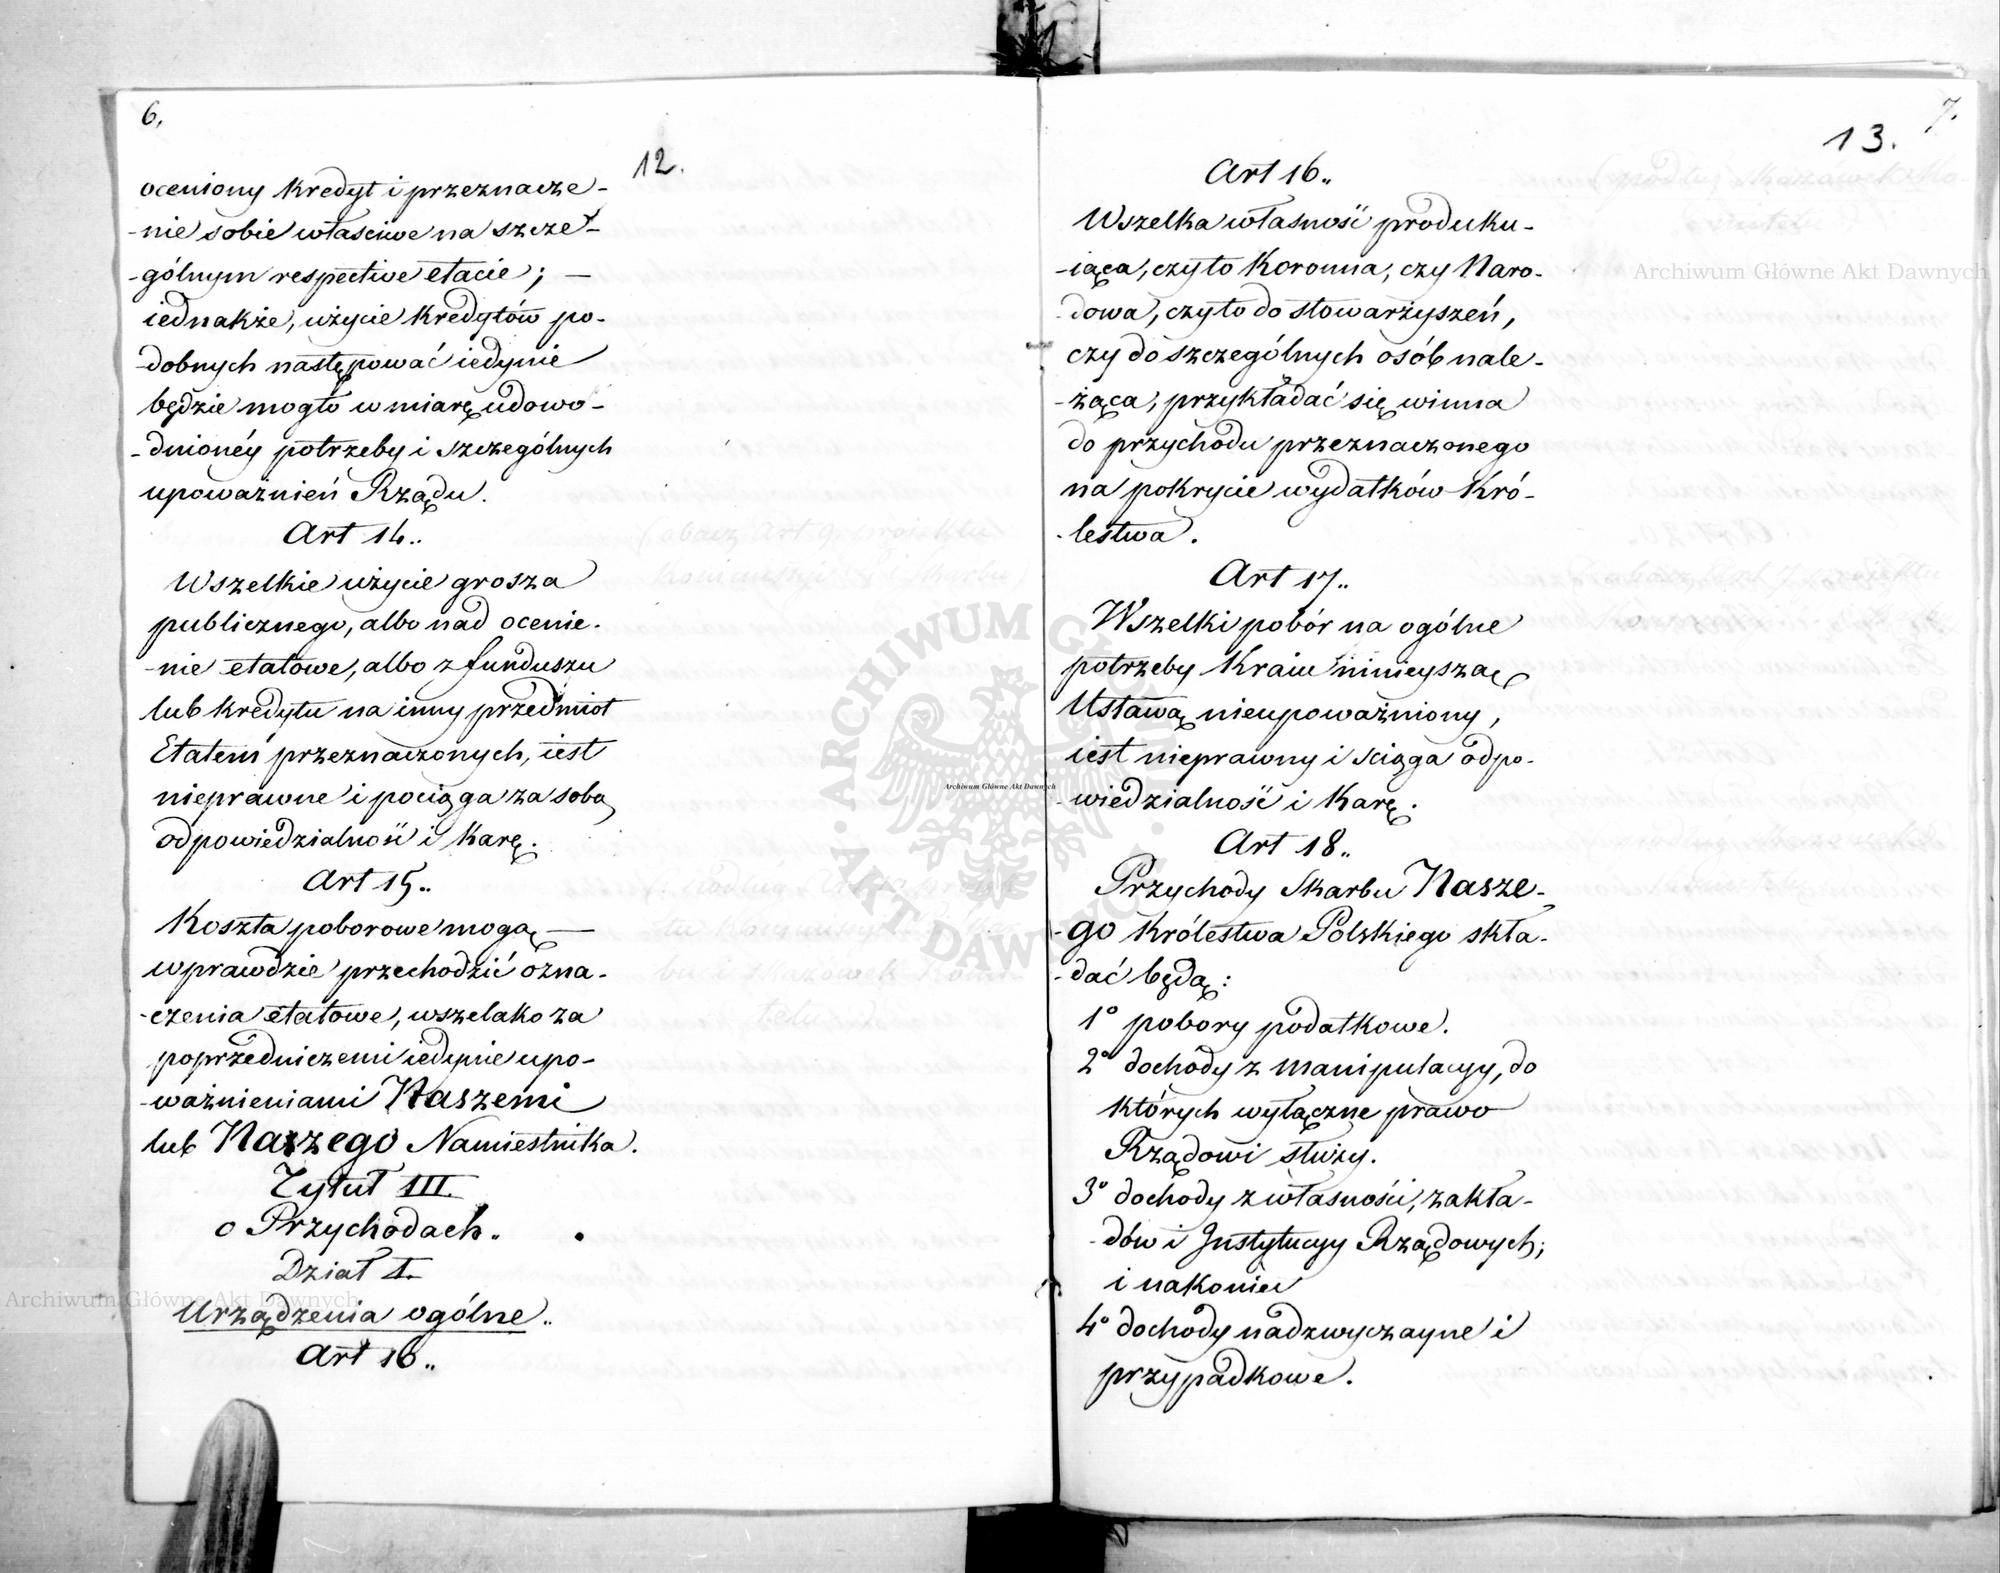 6.
12.
oceniony kredyt i przeznacze-
-nie sobie właściwe na szcze-
-gólnym respective etacie; —
iednakże, użycie kredytów po-
-dobnych następować iedynie
będzie mogło w miarę udowo-
-dnionéy potrzeby i szczególnych
upoważnień Rządu.
Art 14..
Wszelkie użycie grosza
publicznego, albo nad ocenie-
-nie etatowe, albo z funduszu
lub kredytu na inny przedmiot
Etatem przeznaczonych, iest
nieprawne i pociąga za sobą
odpowiedzialność i karę.
Art 15..
Koszta poborowe mogą —
wprawdzie przechodzić ozna-
-czenia etatowe, wszelako za
poprzedniczemi iedynie upo-
-ważnieniami Naszemi
lub Naszego Namiestnika.
Tytuł III.
o Przychodach..
Dział I.
Urządzenia ogólne..
Art 16..
7.
13.
Art 16..
Wszelka własność produku-
-iąca, czy to Koronna, czy Naro-
-dowa, czy to do stowarzyszeń,
czy do szczególnych osób nale-
-żąca, przykładać się winna
do przychodu przeznaczonego
na pokrycie wydatków Kró-
-lestwa.
Art 17..
Wszelki pobór na ogólne
potrzeby Kraiu ninieyszą
Ustawą nieupoważniony,
iest nieprawny i sciąga odpo-
-wiedzialność i karę.
Art 18..
Przychody Skarbu Nasze-
-go Królestwa Polskiego skła-
-dać będą:
1° pobory podatkowe.
2° dochody z manipulacyy, do
których wyłączne prawo
Rządowi służy.
3° dochody z własności, zakła-
-dów i Instytucyy Rządowych;
i nakoniec
4° dochody nadzwyczayne i
przypadkowe.
Archiwum Główne Akt Dawnych
Archiwum Główne Akt Dawnych
Archiwum Główne Akt Dawnych
ARCHIWUM GŁÓWNE · AKT DAWNYCH ·